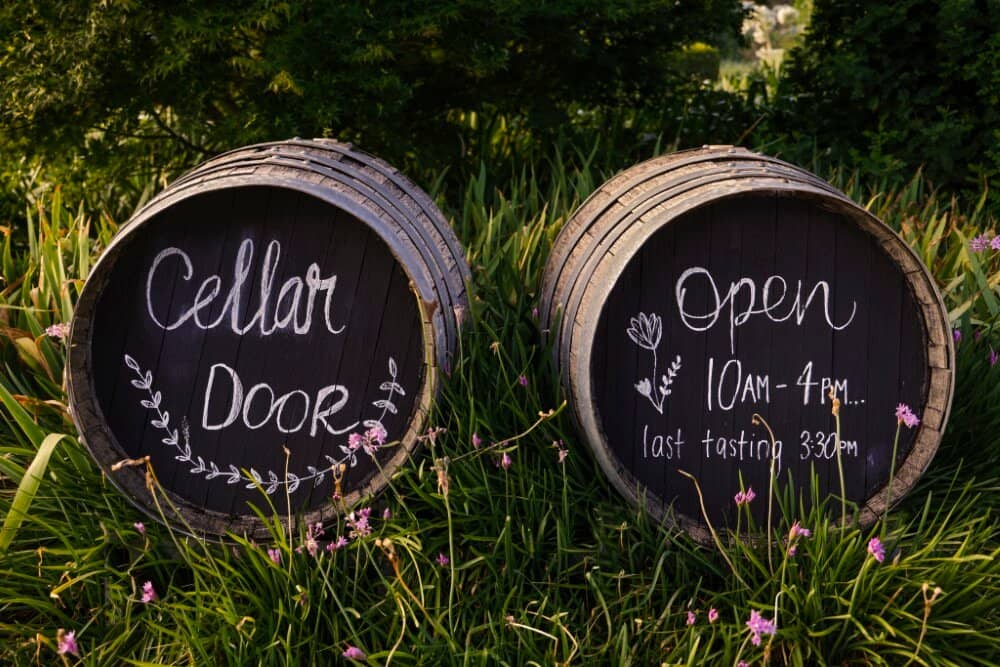 Cellar
DOOR
Open
10AM - 4PM...
last tasting 3:30PM